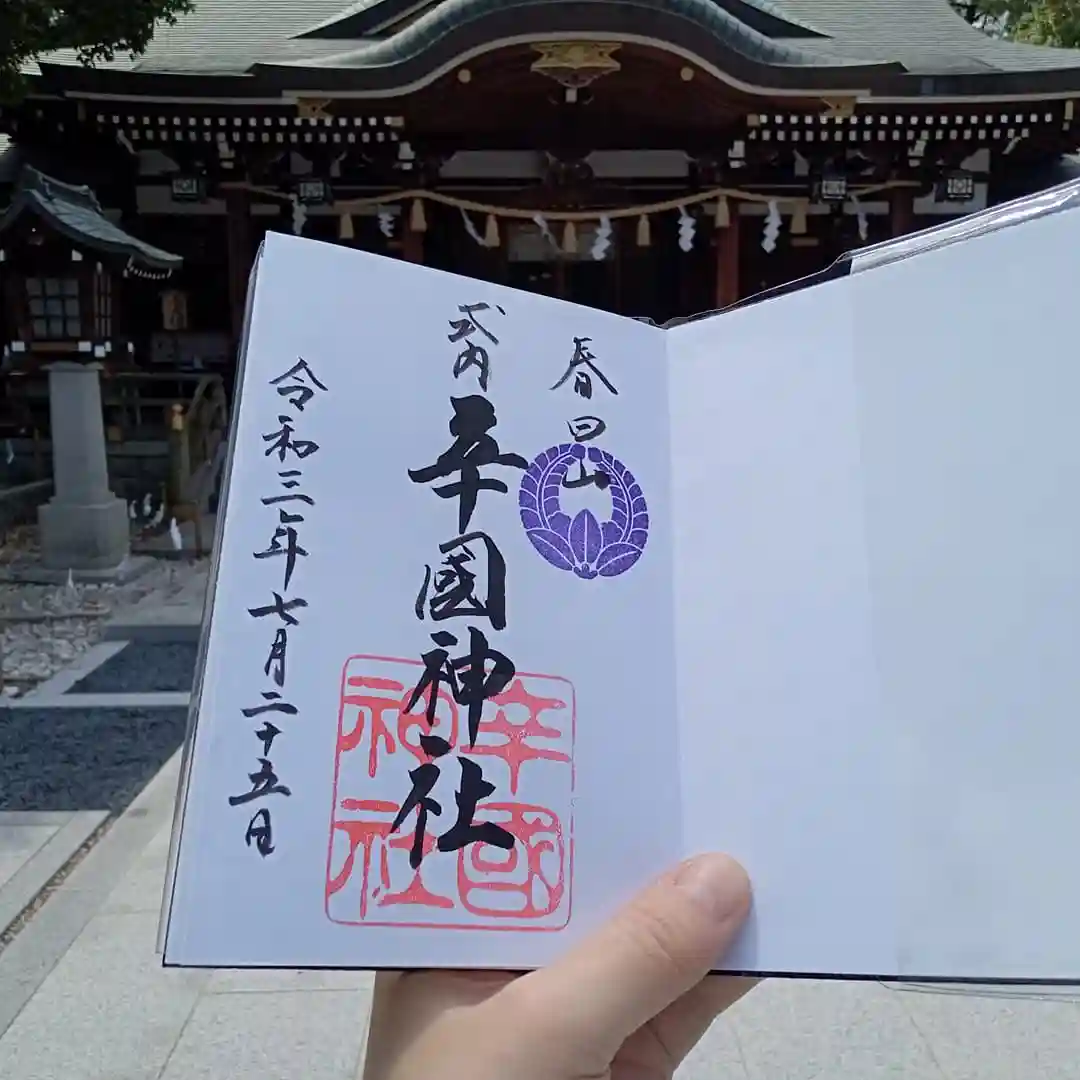 春日山
式内
辛國神社
令和三年七月二十五日
辛國
神社